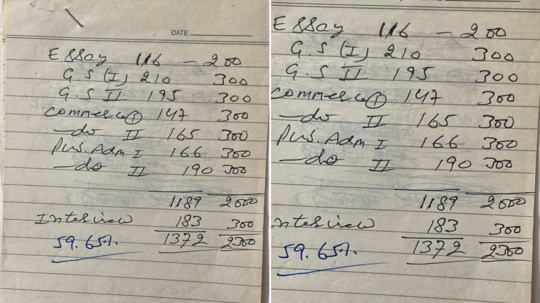 DATE
Essay 116 - 200
G.S (I) 210 300
G.S II 195 300
Commerce (I) 147 300
-do II 165 300
Pub. Adm I 166 300
-do II 190 300
1189 2000
Interview 183 300
59.65%. 1372 2300
Essay 116 - 200
G.S (I) 210 300
G.S II 195 300
Commerce (I) 147 300
-do II 165 300
Pub. Adm I 166 300
-do II 190 300
1189 2000
nterview 183 300
59.65%. 1372 2300